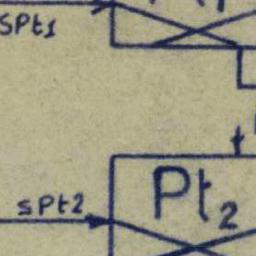 SPt1
sPt2
Pt2